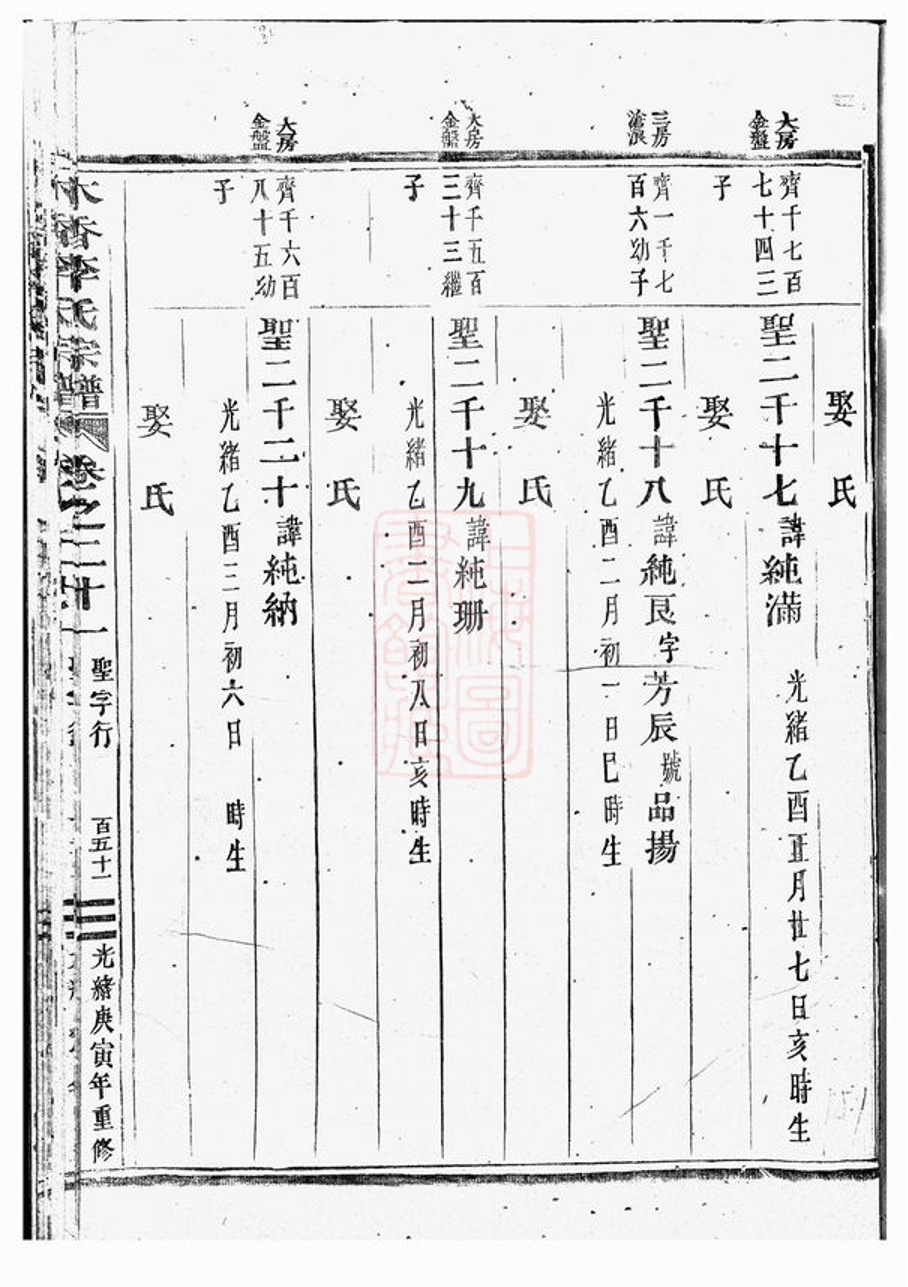 娶 氏
大房
金盤
齊千七百
七十四三
子
聖二千十七 諱純滿
光緒乙酉正月廿七日亥時生
娶 氏
三房
滄浪
齊一千七
百六幼子
聖二千十八 諱純良 字芳辰 號品揚
光緒乙酉二月初一日巳時生
娶 氏
大房
金盤
齊千五百
三十三繼
子
聖二千十九 諱純珊
光緒乙酉二月初八日亥時生
娶 氏
大房
金盤
齊千六百
八十五幼
子
聖二千二十 諱純納
光緒乙酉三月初六日 時生
娶 氏
李氏宗譜 卷之二廿一 聖字行 百五十一 光緒庚寅年重修